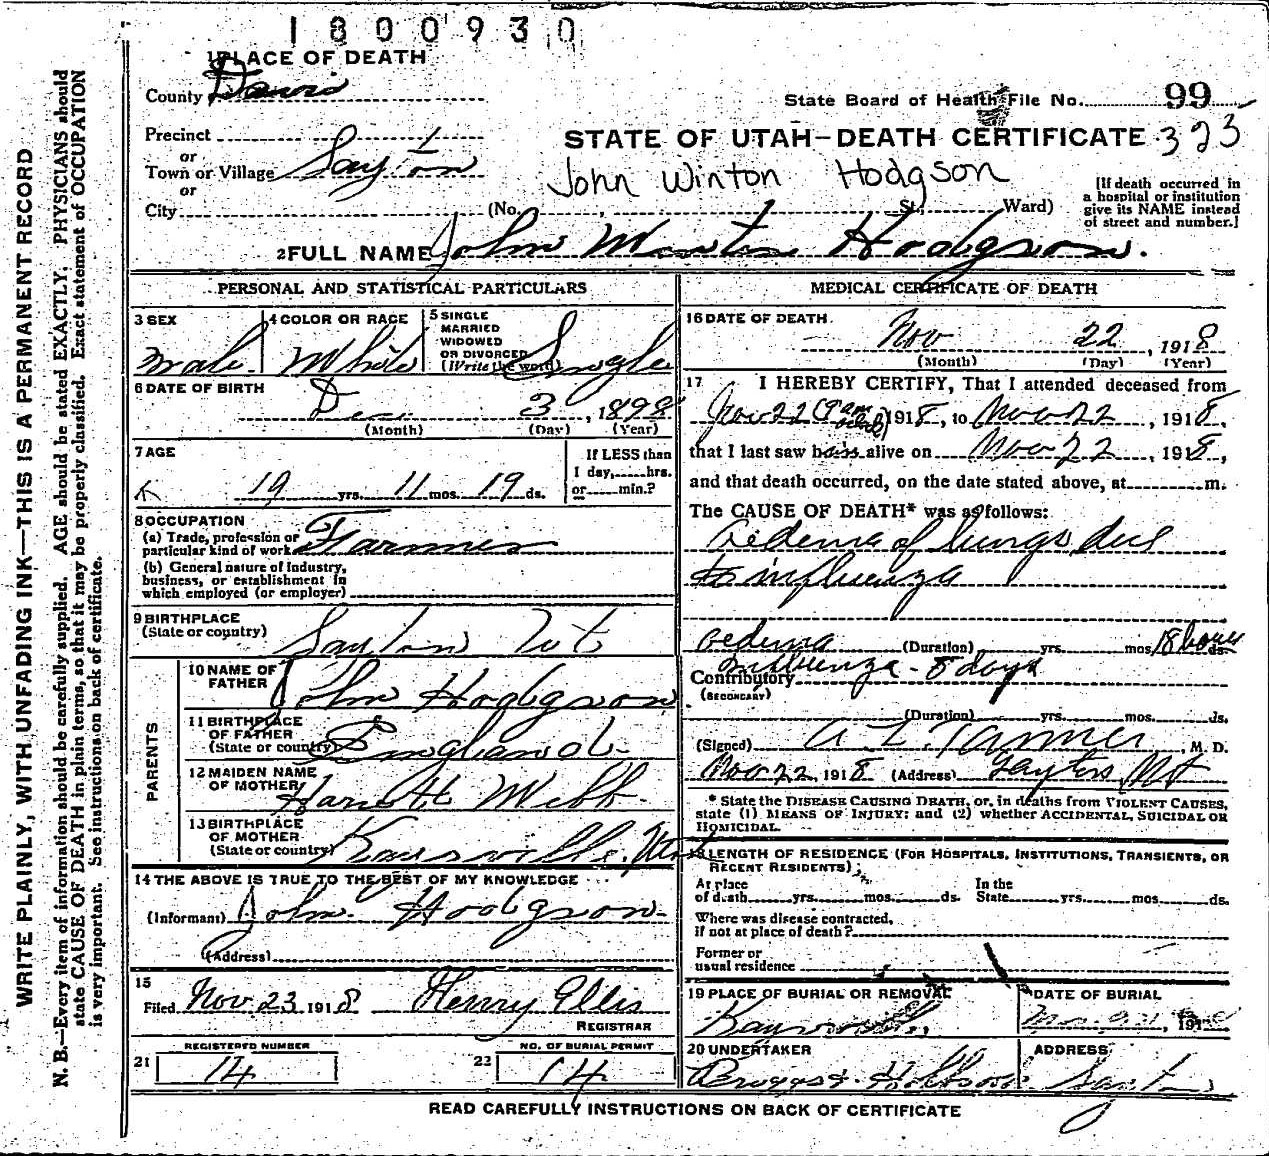 1800930
1 PLACE OF DEATH
County Davis
State Board of Health File No. 99
Precinct
STATE OF UTAH—DEATH CERTIFICATE 323
or
Town or Village Layton
John Winton Hodgson
or
City (No. St. Ward)
[If death occurred in
a hospital or institution
give its NAME instead
of street and number.]
2 FULL NAME John Winton Hodgson.
PERSONAL AND STATISTICAL PARTICULARS
3 SEX
male
4 COLOR OR RACE
White
5 SINGLE
MARRIED
WIDOWED
OR DIVORCED
(Write the word) Single
6 DATE OF BIRTH
Dec 3, 1898
(Month) (Day) (Year)
7 AGE
19 yrs. 11 mos. 19 ds.
If LESS than
1 day, hrs.
or min.?
8 OCCUPATION
(a) Trade, profession or
particular kind of work Farmer
(b) General nature of industry,
business, or establishment in
which employed (or employer)
9 BIRTHPLACE
(State or country) Layton Ut
PARENTS
10 NAME OF
FATHER John Hodgson
11 BIRTHPLACE
OF FATHER
(State or country) England.
12 MAIDEN NAME
OF MOTHER Webb.
13 BIRTHPLACE
OF MOTHER
(State or country) Kaysville, Utah
14 THE ABOVE IS TRUE TO THE BEST OF MY KNOWLEDGE
(Informant) John Hodgson.
(Address)
15
Filed Nov. 23 1918 Henry Ellis
REGISTRAR
21 REGISTERED NUMBER
14
22 NO. OF BURIAL PERMIT
14
MEDICAL CERTIFICATE OF DEATH
16 DATE OF DEATH
Nov 22, 1918
(Month) (Day) (Year)
17 I HEREBY CERTIFY, That I attended deceased from
Nov 22 1918, to Nov 22, 1918,
that I last saw him alive on Nov 22, 1918,
and that death occurred, on the date stated above, at m.
The CAUSE OF DEATH* was as follows:
Oedema of lungs due
to influenza
oedema (Duration) yrs. mos. 18 hours ds.
Contributory influenza - 8 days
(SECONDARY)
(Duration) yrs. mos. ds.
(Signed) A Z Tanner, M. D.
Nov 22, 1918 (Address) Layton, Ut
* State the DISEASE CAUSING DEATH, or, in deaths from VIOLENT CAUSES,
state (1) MEANS OF INJURY; and (2) whether ACCIDENTAL, SUICIDAL OR
HOMICIDAL.
18 LENGTH OF RESIDENCE (FOR HOSPITALS, INSTITUTIONS, TRANSIENTS, OR
RECENT RESIDENTS)
At place
of death yrs. mos. ds.
In the
State yrs. mos. ds.
Where was disease contracted,
if not at place of death?
Former or
usual residence
19 PLACE OF BURIAL OR REMOVAL
Kaysville
DATE OF BURIAL
191
20 UNDERTAKER
ADDRESS
Layton
READ CAREFULLY INSTRUCTIONS ON BACK OF CERTIFICATE
WRITE PLAINLY, WITH UNFADING INK—THIS IS A PERMANENT RECORD
N. B.—Every item of information should be carefully supplied. AGE should be stated EXACTLY. PHYSICIANS should
state CAUSE OF DEATH in plain terms, so that it may be properly classified. Exact statement of OCCUPATION
is very important. See instructions on back of certificate.